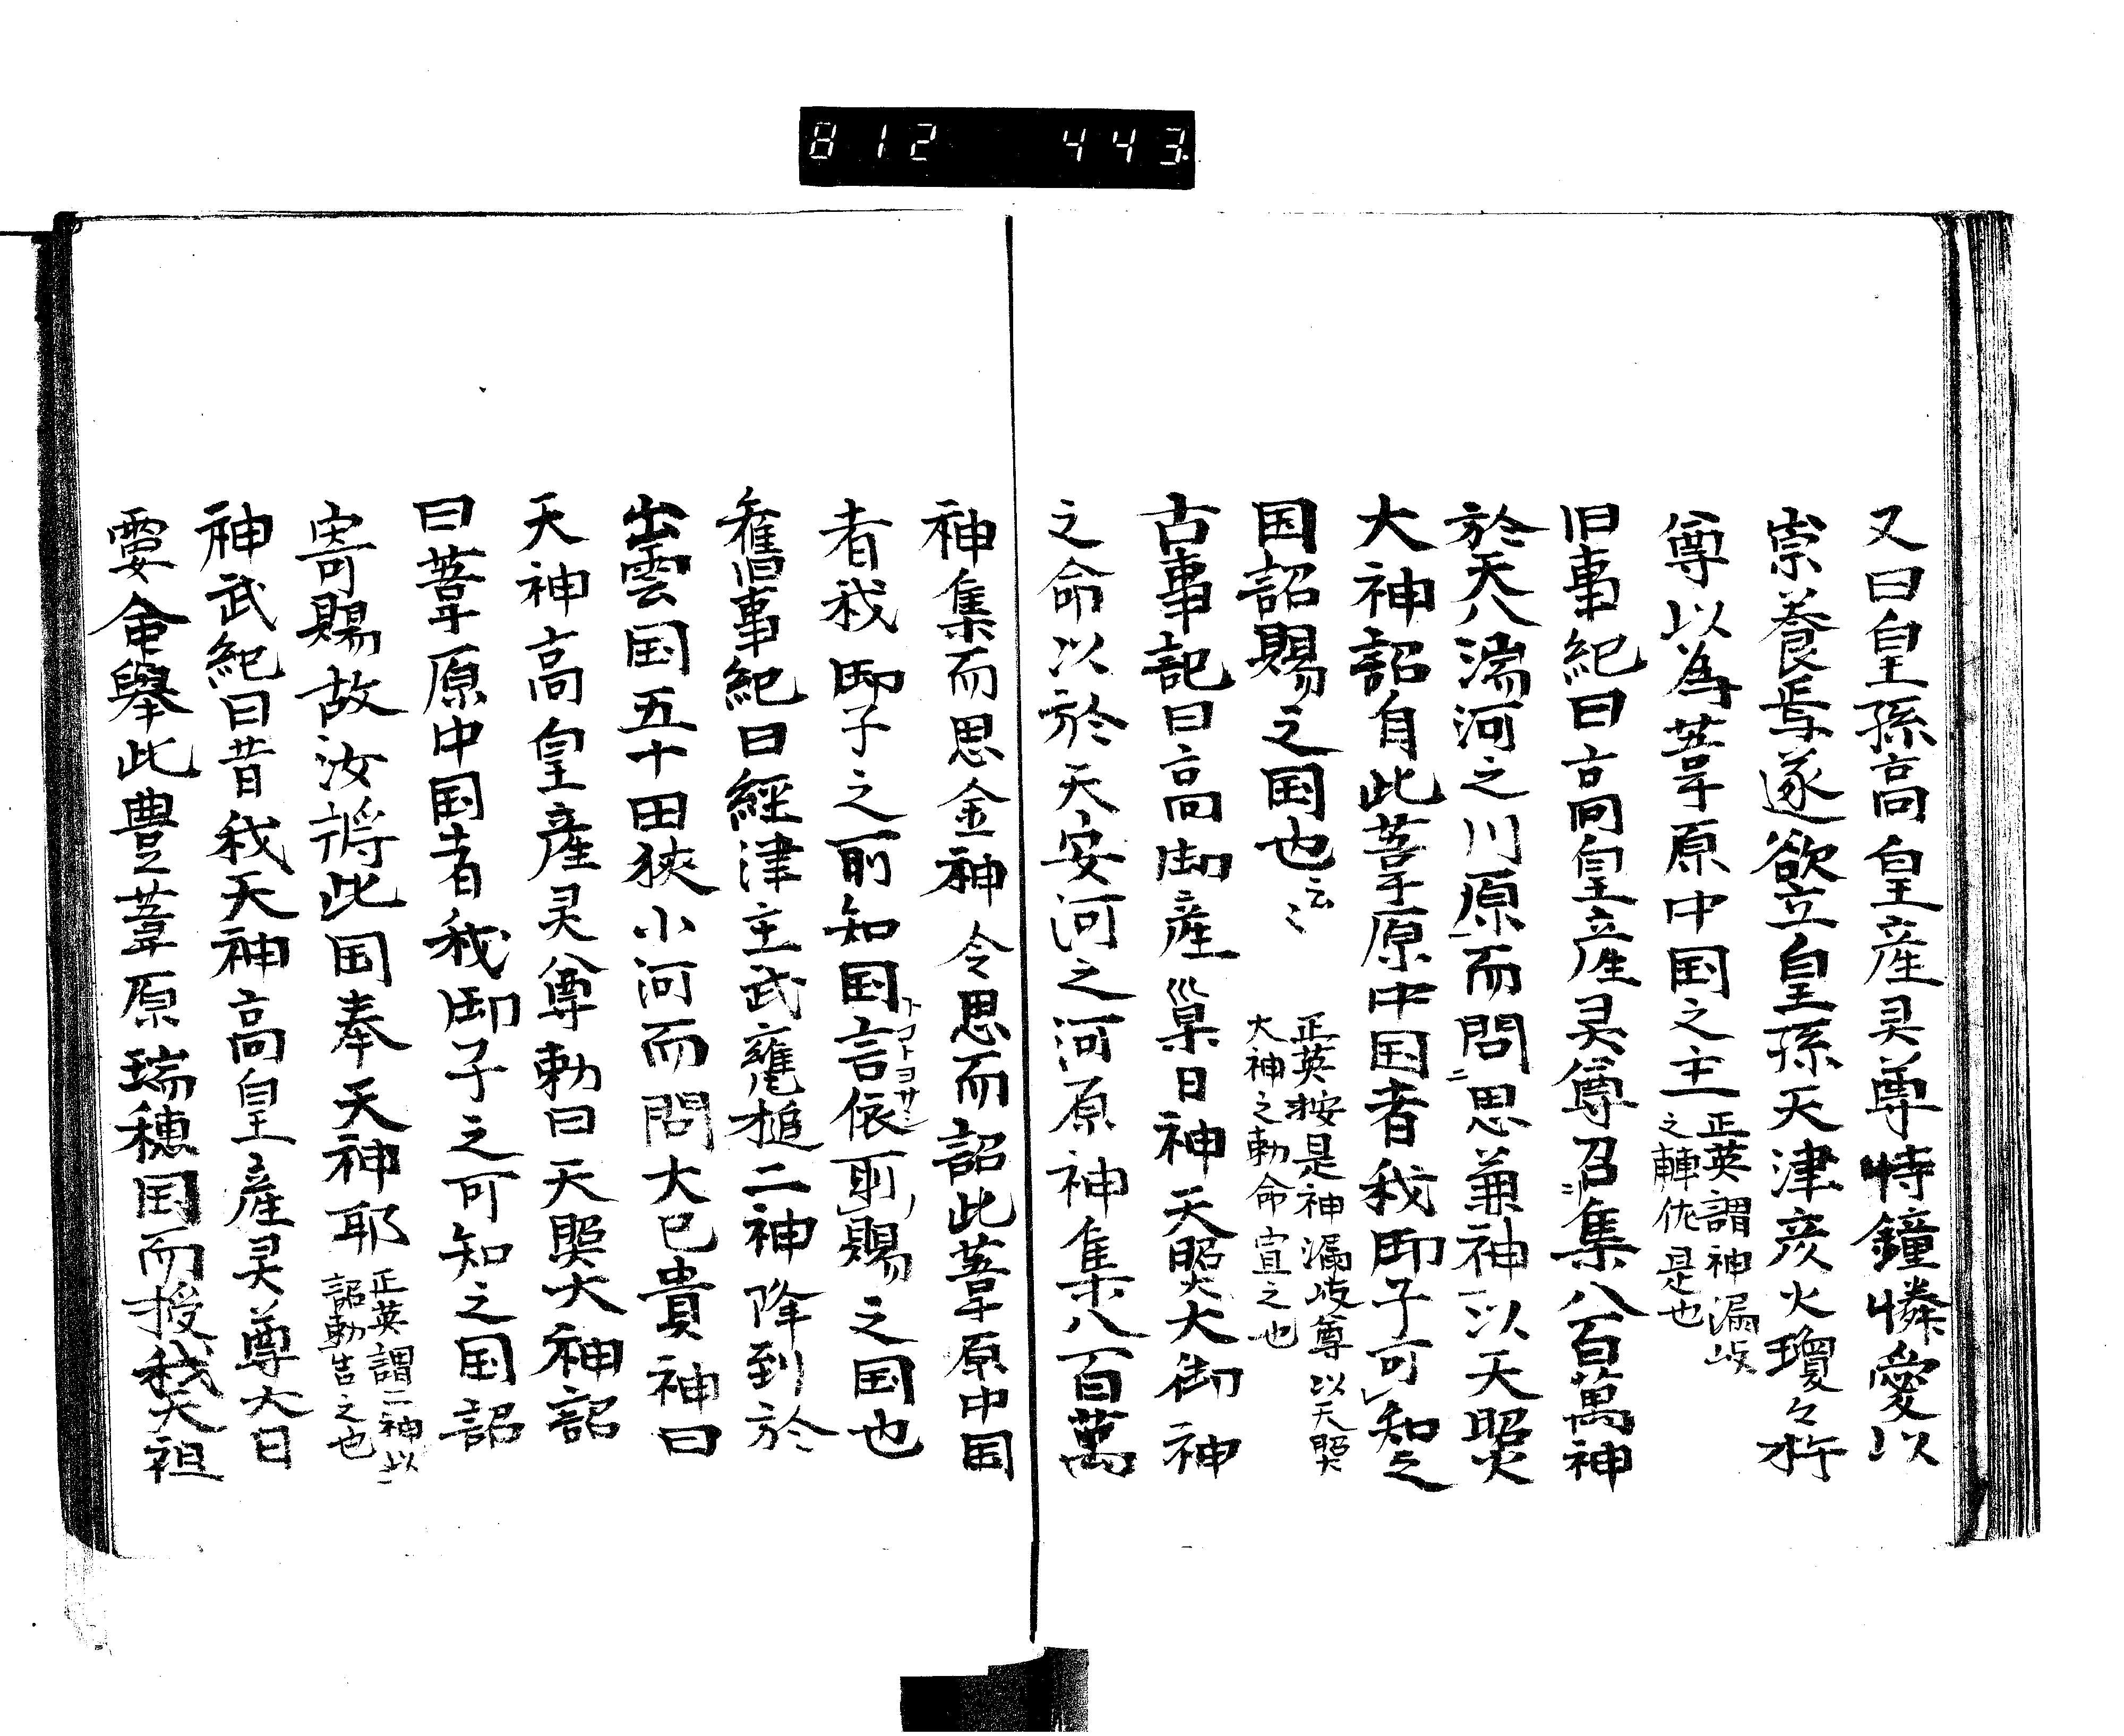 812 443
又曰皇孫高皇産灵尊特鐘憐愛以
崇養焉遂欲立皇孫天津彦火瓊々杵
尊以為葦原中国之主正英謂神漏岐
之輔佐是也
旧事紀曰高皇産灵尊召集八百萬神
於天八湍河之川原而問思兼神以天照
大神詔自此葦原中国者我御子可知之
国詔賜之国也云〻
正英按是神漏岐尊以天照
大神之勅命宣之也
古事記曰高御産巣日神天照大御神
之命以於天安河之河原神集八百萬
神集而思金神令思而詔此葦原中国
者我御子之所知国言依所賜之国也
トコトヨサシ
舊旧事紀曰經津主武甕槌二神降到於
出雲国五十田狹小河而問大己貴神曰
天神高皇産灵尊勅曰天照大神詔
曰葦原中国者我御子之可知之国詔
寄賜故汝将此国奉天神耶
正英謂二神以
詔勅告之也
神武紀曰昔我天神高皇産灵尊大日
孁命擧此豊葦原瑞穂国而授我天祖